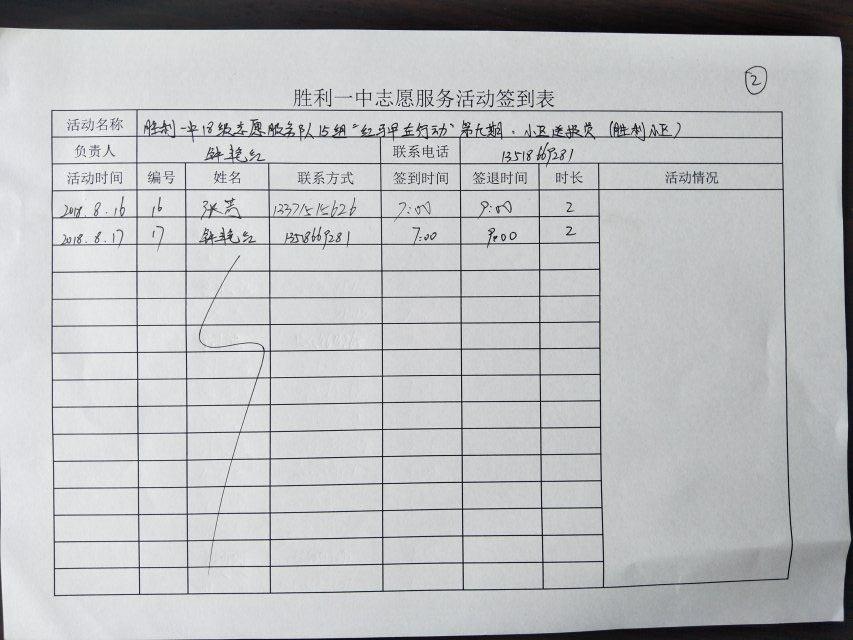 ②
胜利一中志愿服务活动签到表
活动名称 胜利一中18级志愿服务队15组"红马甲在行动"第九期·小区送报员(胜利小区)
负责人 钟艳红 联系电话 13518669281
活动时间 编号 姓名 联系方式 签到时间 签退时间 时长 活动情况
2018.8.16 16 张 13371515626 7:00 9:00 2
2018.8.17 17 钟艳红 13518669281 7:00 9:00 2